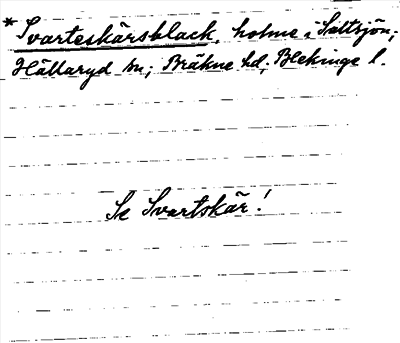 *Svarteskärsblack, holme i Saltsjön;
Hällaryd sn; Bräkne hd; Blekinge l.
Se Svartskär!